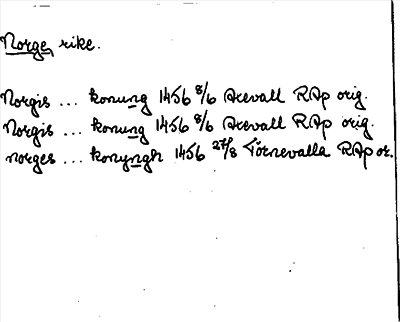 Norge, rike.
Norgis ... konung 1456 8/6 Arevall RAp orig.
Norgis ... konung 1456 8/6 Arevall RAp orig.
norges ... konyngh 1456 27/8 Törnevalla RAp or.